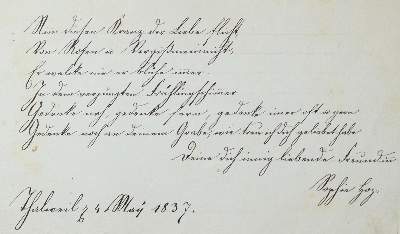 Nim diesen Kranz der Liebe flicht
Von Rosen u Vergißmeinnicht,
Er welke nie er blühe imer
In dem verjüngten Frühlingschimmer
Gedenke nah, gedenke fern, gedenke imer oft u gern
Gedenke noch an deinem Grabe, wie treu ich dich geliebet habe
Deine dich innig liebende Freundin
Sophie
Thalweil 4 May 1837.